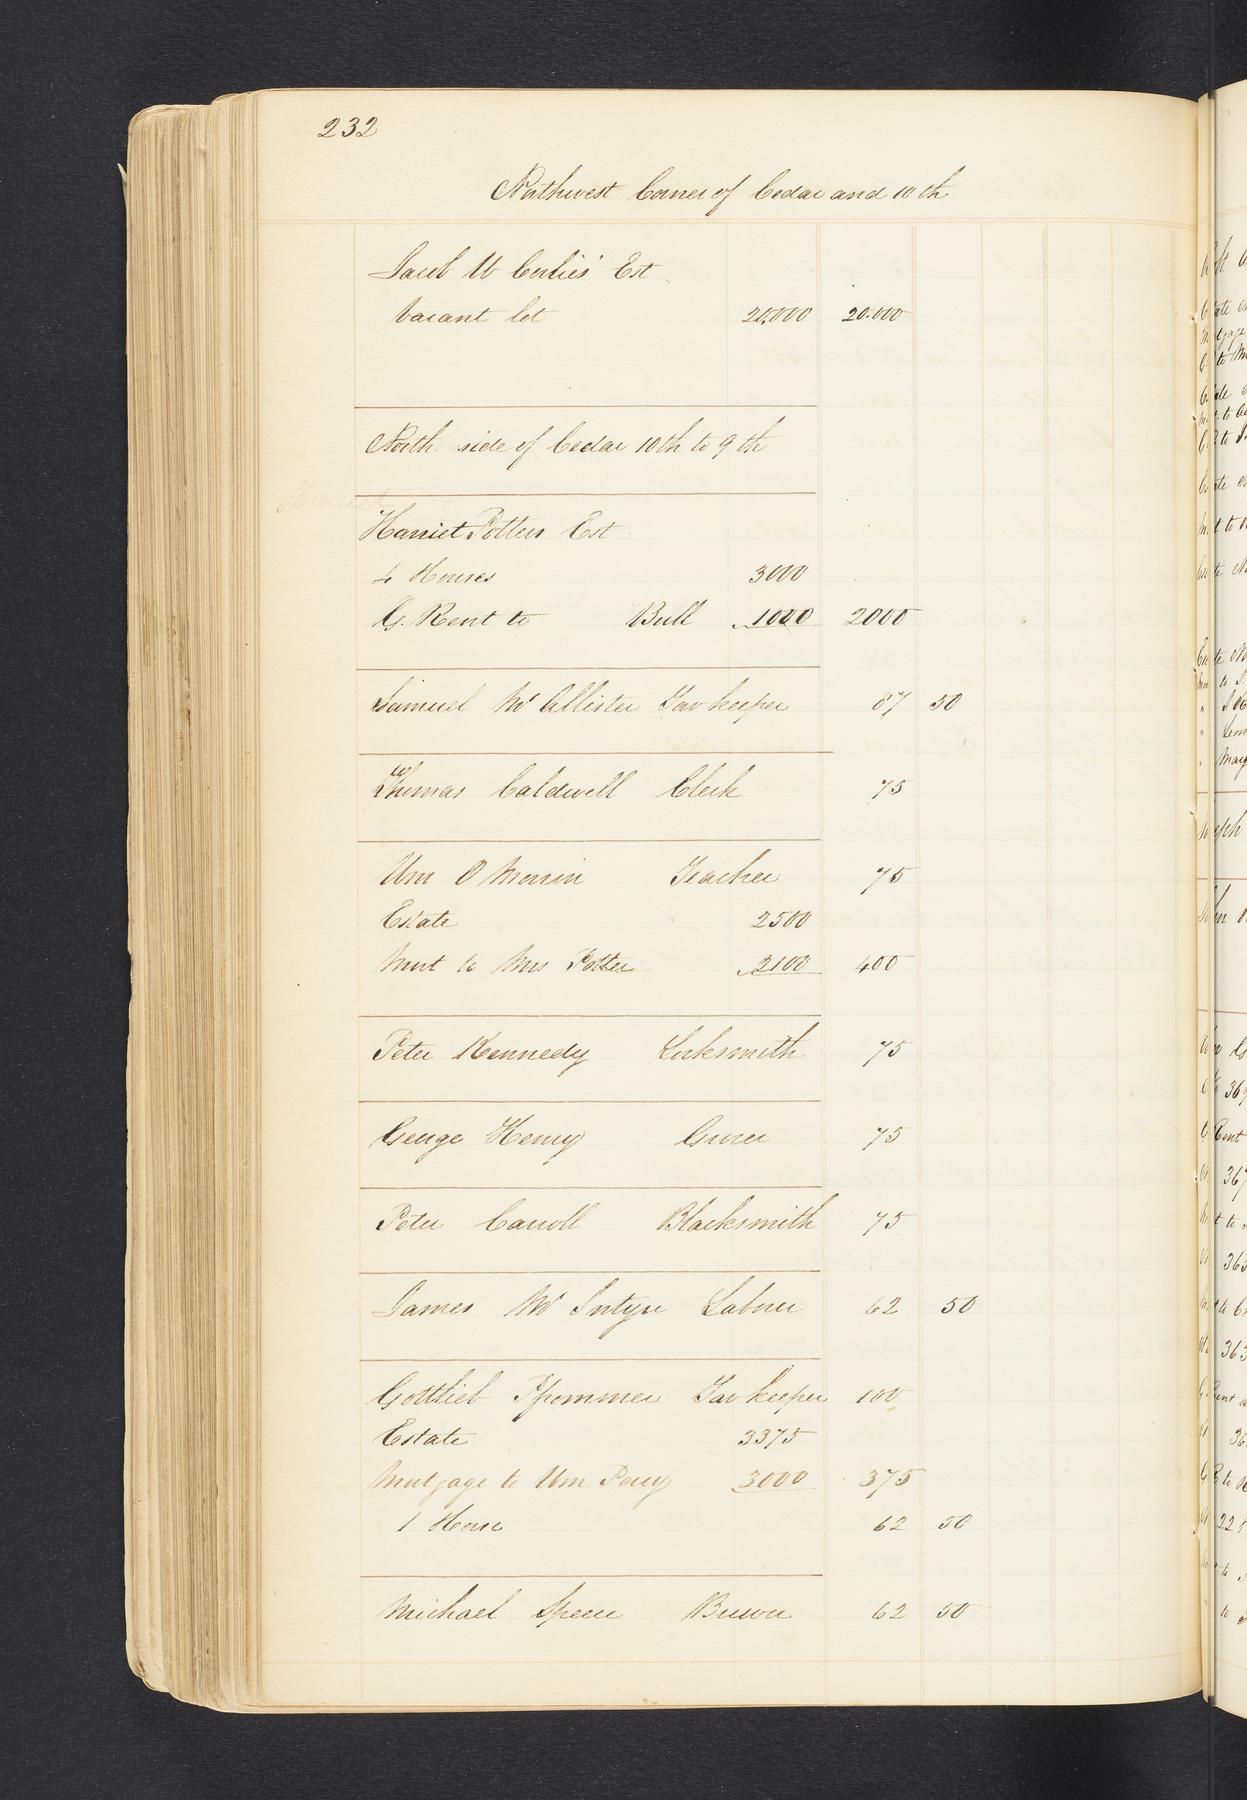 232
Northwest Corner of Cedar and 10th
Jacob W Corlies' Est
Vacant lot 20,000 20.000
North side of Cedar 10th to 9th
Harriet
Harriet Potters Est
4 Houses 3000
G. Rent to Bull 1000 2000
Samuel Mc Allister Tav keeper 87 50
Thomas Caldwell Clerk 75
Wm O Morrin Teacher 75
Estate 2500
Mort to Mrs Potter 2100 400
Peter Kennedy Locksmith 75
George Henry Grocer 75
Peter Carroll Blacksmith 75
James Mc Intyre Laborer 62 50
Gottlieb Pfrommer Tav keeper 100
Estate 3375
Mortgage to Wm Perry 3000 375
1 Horse 62 50
Michael Speece Brewer 62 50